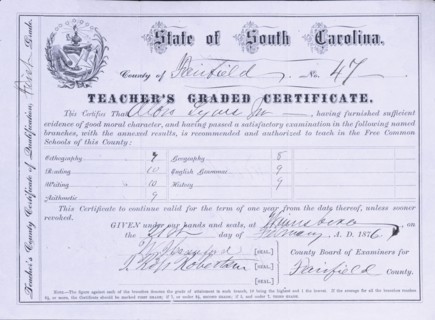 State of South Carolina.
County of Fairfield No. 47
TEACHER'S GRADED CERTIFICATE.
This Certifies That having furnished sufficient
evidence of good moral character, and having passed a satisfactory examination in the following named
branches, with the annexed results, is recommended and authorized to teach in the Free Common
Schools of this County:
Orthography 7 Geography 5
Reading 10 English Grammar 9
Writing 10 History 9
Arithmetic 9
This Certificate to continue valid for the term of one year from the date thereof, unless sooner
revoked.
GIVEN under our hands and seals, at Winnsboro
on the day of A. D. 1876
[SEAL.]
[SEAL.]
[SEAL.]
County Board of Examiners for
Fairfield County.
NOTE.—The figure against each of the branches denotes the grade of attainment in such branch, 10 being the highest and 1 the lowest. If the average for all the branches reaches
Teacher's County Certificate of Qualification, First Grade.